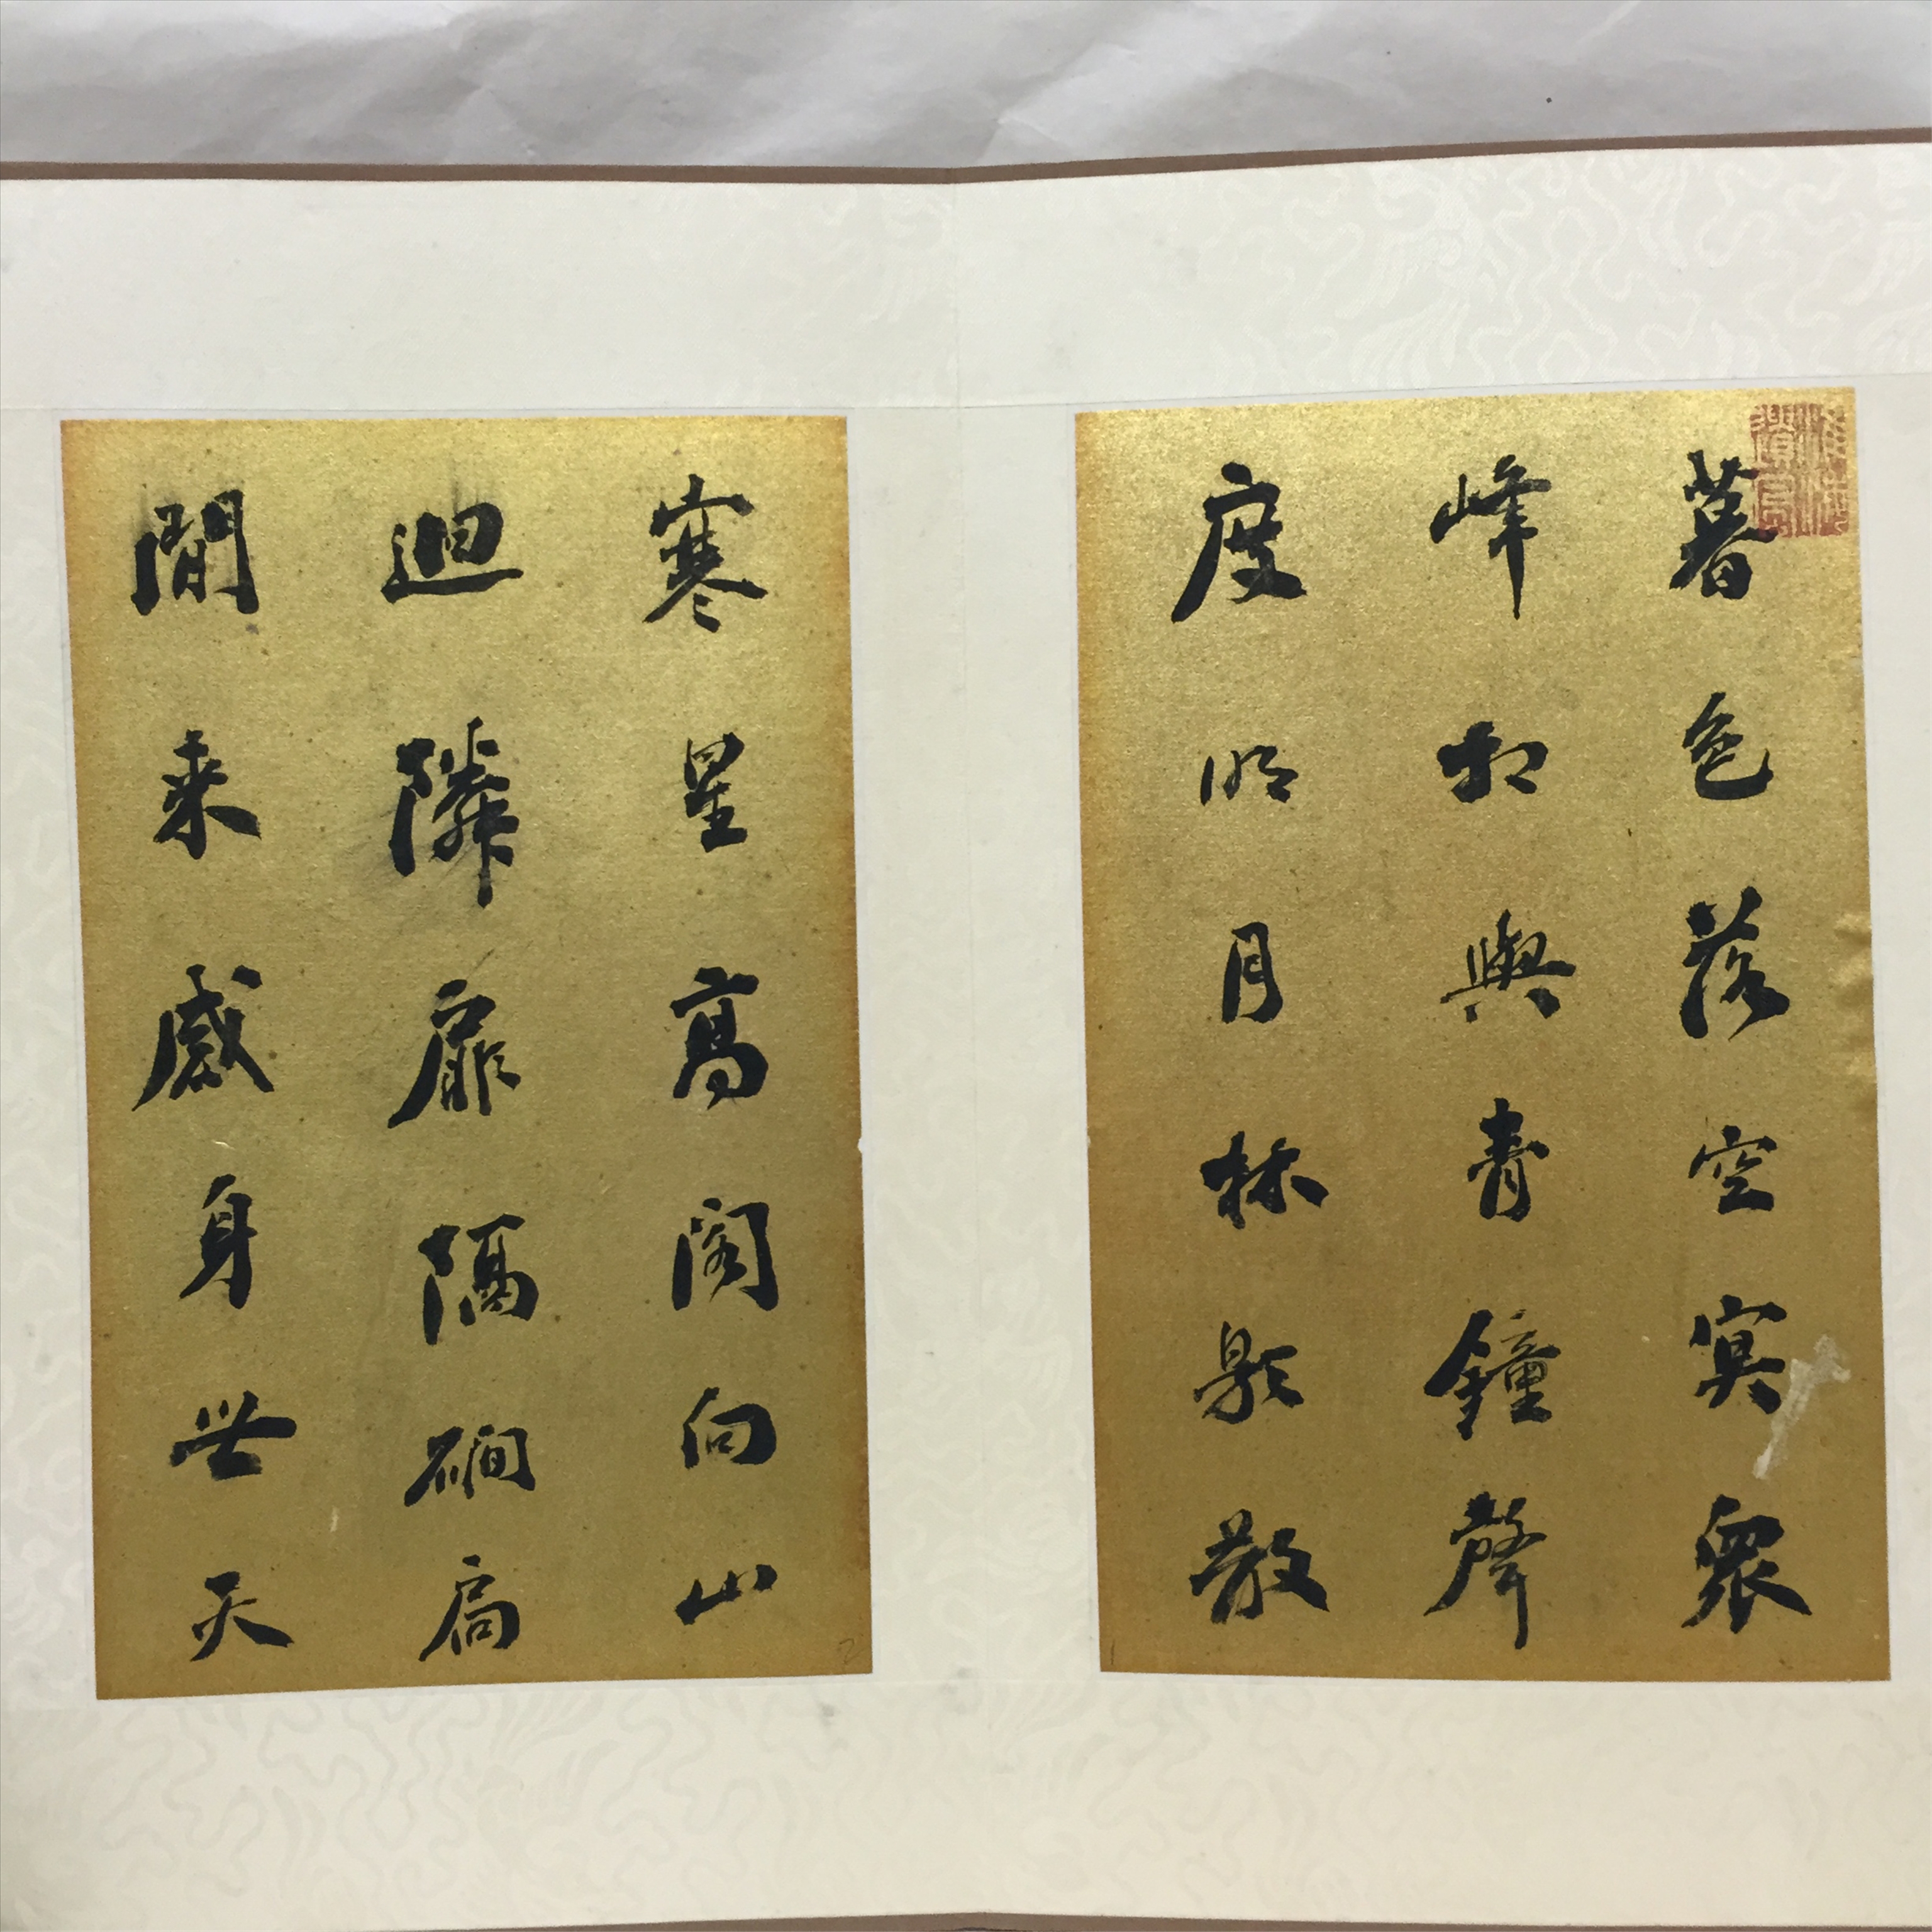 暮色落空冥衆
峰相與青鐘聲
度明月林影散
寒星高閣向山
迴隣扉隔磵扃
閒来感身世天